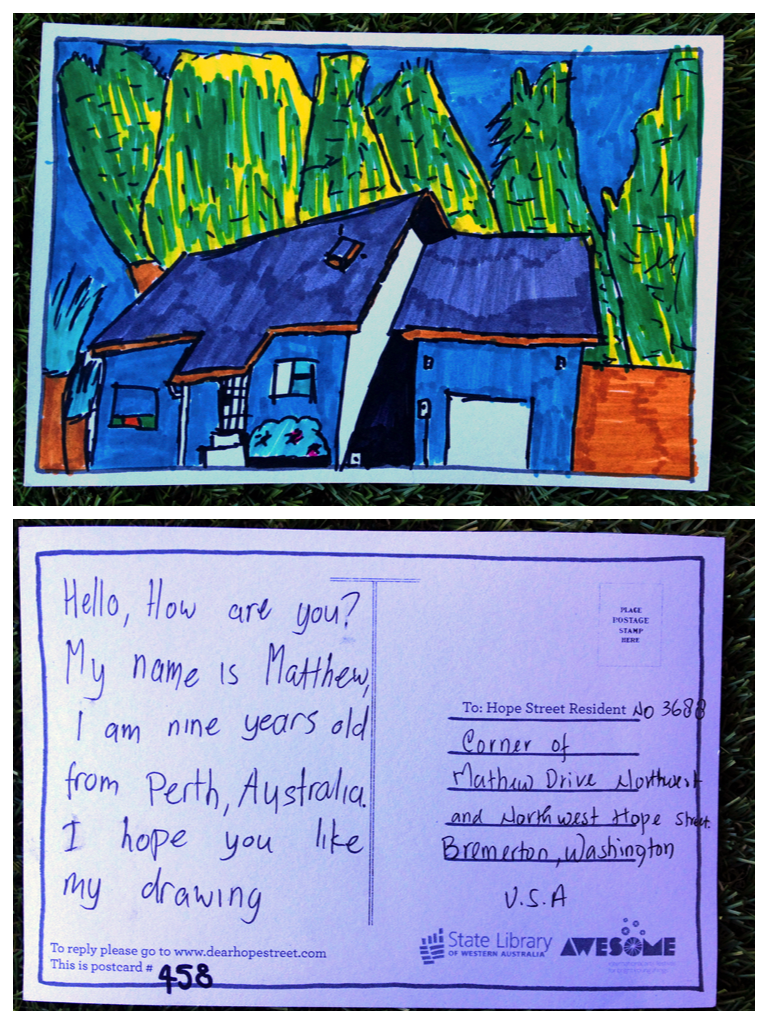 Hello, How are you?
My name is Matthew,
I am nine years old
from Perth, Australia.
I hope you like
my drawing
To reply please go to www.dearhopestreet.com
This is postcard # 458
PLACE
POSTAGE
STAMP
HERE
To: Hope Street Resident No 3688
Corner of
Mathew Drive Northwest
and Northwest Hope Street.
Bremerton, Washington
U.S.A
State Library
OF WESTERN AUSTRALIA
AWESOME